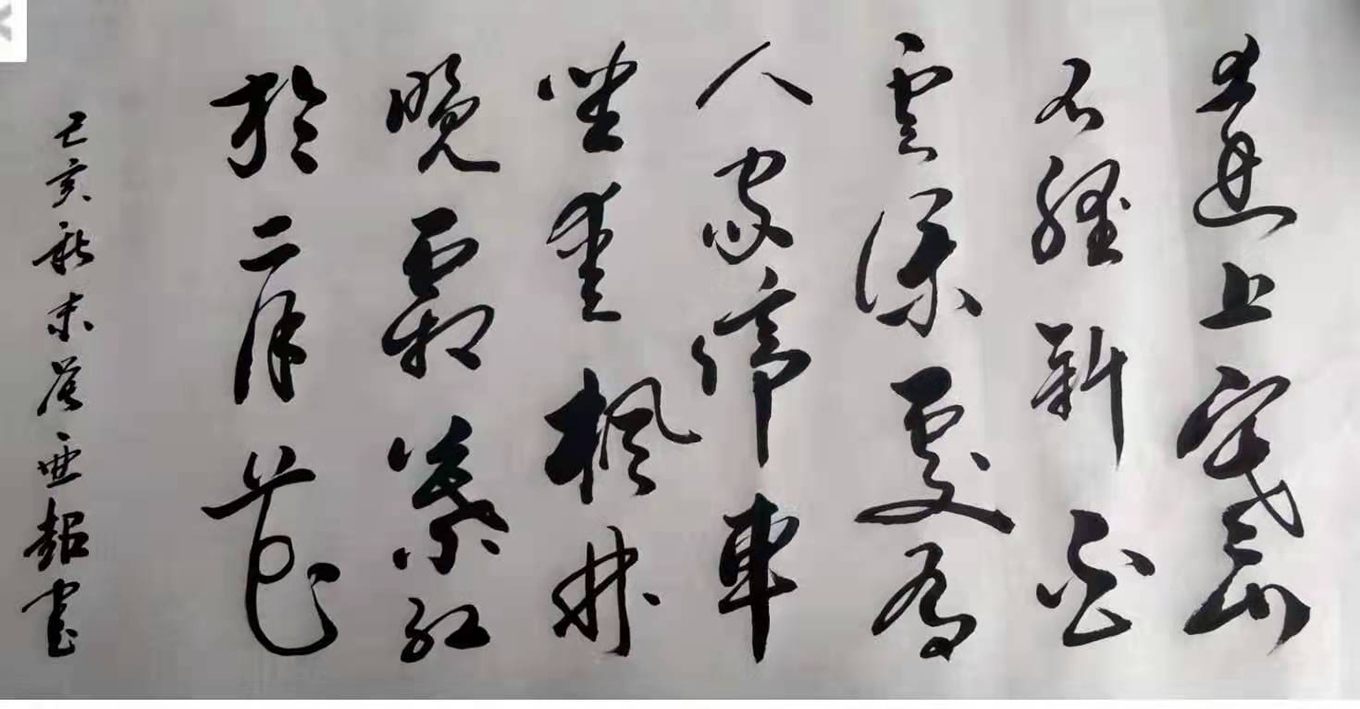 遠上寒山
石徑斜白
雲深處有
人家停車
坐愛枫林
晚霜葉紅
於二月花
己亥秋末亚書